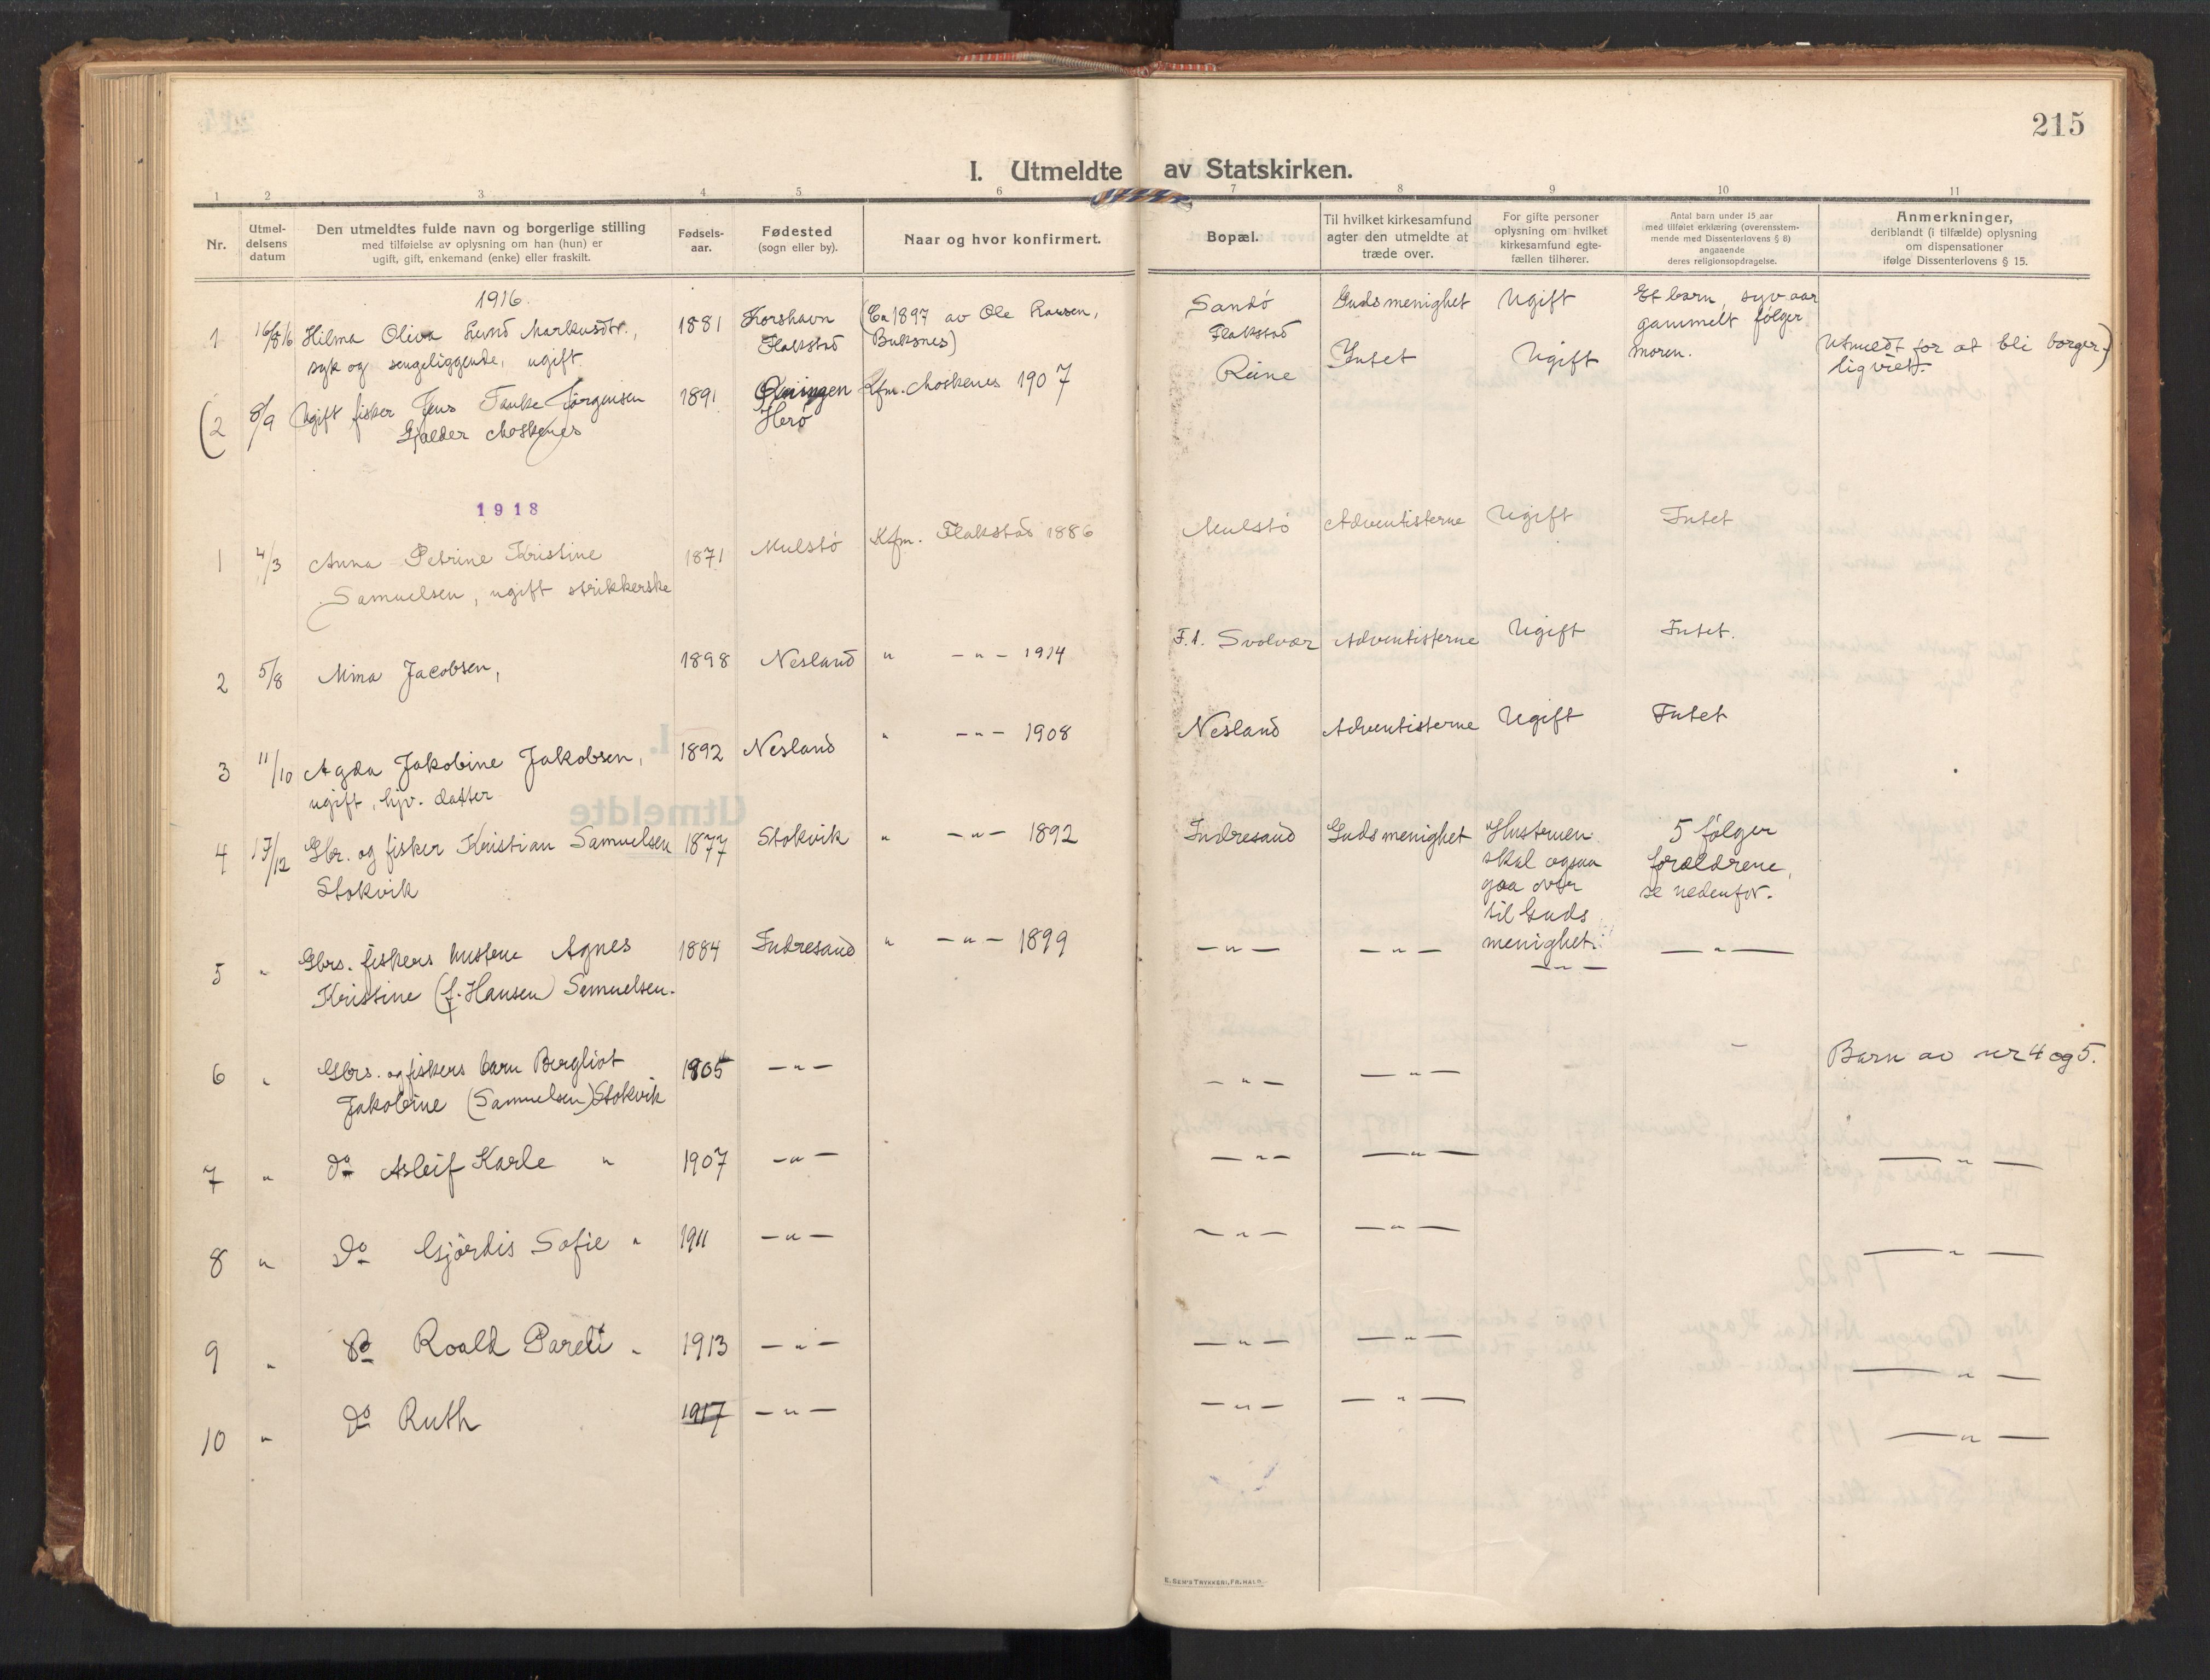 215
I. Utmeldte av Statskirken.
1 2 3 4 5 6 7 8 9 10 11
Nr.
Utmel-
delsens
datum
Den utmeldtes fulde navn og borgerlige stilling
med tilføielse av oplysning om han (hun) er
ugift, gift, enkemand (enke) eller fraskilt.
Fødsels-
aar.
Fødested
(sogn eller by).
Naar og hvor konfirmert.
Bopæl.
Til hvilket kirkesamfund
agter den utmeldte at
træde over.
For gifte personer
oplysning om hvilket
kirkesamfund egte-
fællen tilhører.
Antal barn under 15 aar
med tilføiet erklæring (overensstem-
mende med Dissenterlovens § 8)
angaaende
deres religionsopdragelse.
Anmerkninger,
deriblandt (i tilfælde) oplysning
om dispensationer
ifølge Dissenterlovens § 15.
1916.
1 16/8 16 Hilma Oliva Lund Markusdtr.,
syk og sengeliggende, ugift
1881
Korshavn
Flakstad
(Ca 1897 av Ole Larsen,
Buksnes)
Sandö
Flakstad
Guds menighet
Ugift
Et barn, syv aar
gammelt følger
moren.
(2 8/9 Ugift fisker Jens Tanke Jørgensen
Gjælder Moskenes
1891
Herö
Kfm. Moskenes 1907
Reine
Intet
Ugift
Utmeldt for at bli borger-
lig viet.)
1918
1 4/3 Anna Petrine Kristine
Samuelsen, ugift strikkerske
1871
Mulstö
Kfm. Flakstad 1886
Mulstö
Adventisterne
Ugift
Intet
2 5/8 Mina Jacobsen,
1898
Nesland
" - " - 1914
F.t. Svolvær
Adventisterne
Ugift
Intet.
3 11/10 Agda Jakobine Jakobsen,
ugift, hjv. datter
1892
Nesland
" - " - 1908
Nesland
Adventisterne
Ugift
Intet
4 17/12 Gbr. og fisker Kristian Samuelsen
Stokvik
1877
Stokvik
" - " - 1892
Indresand
Guds menighet
Hustruen
skal ogsaa
gaa over
til Guds
menighet.
5 følger
forældrene,
se nedenfor.
5 " Gbrs. fiskers hustru Agnes
Kristine (f. Hansen) Samuelsen.
1884
Indresand
" - " - 1899
- " -
- " -
- " -
- " -
6 " Gbrs. og fiskers barn Bergliot
Jakobine (Samuelsen) Stokvik
1905
- " -
- " -
- " -
Barn av nr 4 og 5.
7 " do Asleif Karle "
1907
- " -
- " -
- " -
- " -
8 " do Hjördis Sofie "
1911
- " -
- " -
- " -
- " -
9 " do Roald Pareli "
1913
- " -
- " -
- " -
- " -
10 " do Ruth
1917
- " -
- " -
- " -
- " -
E. SEM'S TRYKKERI, FR.HALD.